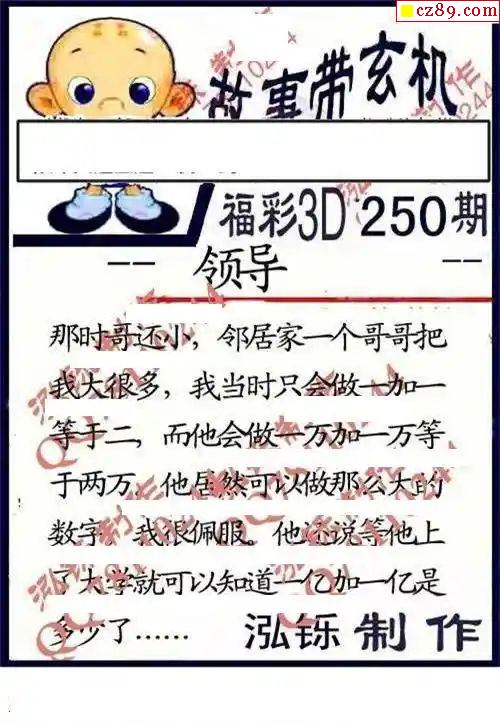 cz89.com
故事带玄机
福彩3D 250期
-- 领导 --
那时哥还小，邻居家一个哥哥把
我大很多，我当时只会做一加一
等于二，而他会做一万加一万等
于两万。他居然可以做那么大的
数字。我很佩服。他还说等他上
了大学就可以知道一亿加一亿是
多少了……
泓铄制作